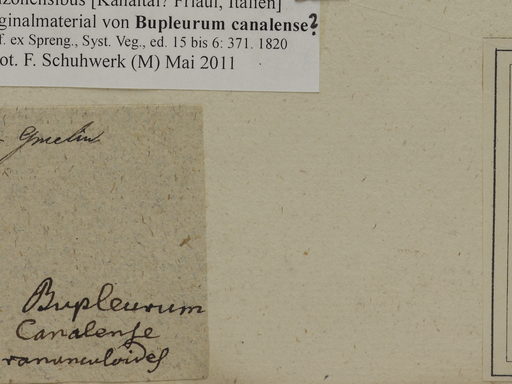 [Kanaltal? Friaul, Italien]
ginalmaterial von Bupleurum canalense?
f. ex Spreng., Syst. Veg., ed. 15 bis 6: 371. 1820
ot. F. Schuhwerk (M) Mai 2011
Gmelin
Bupleurum
Canalense
ranunculoides